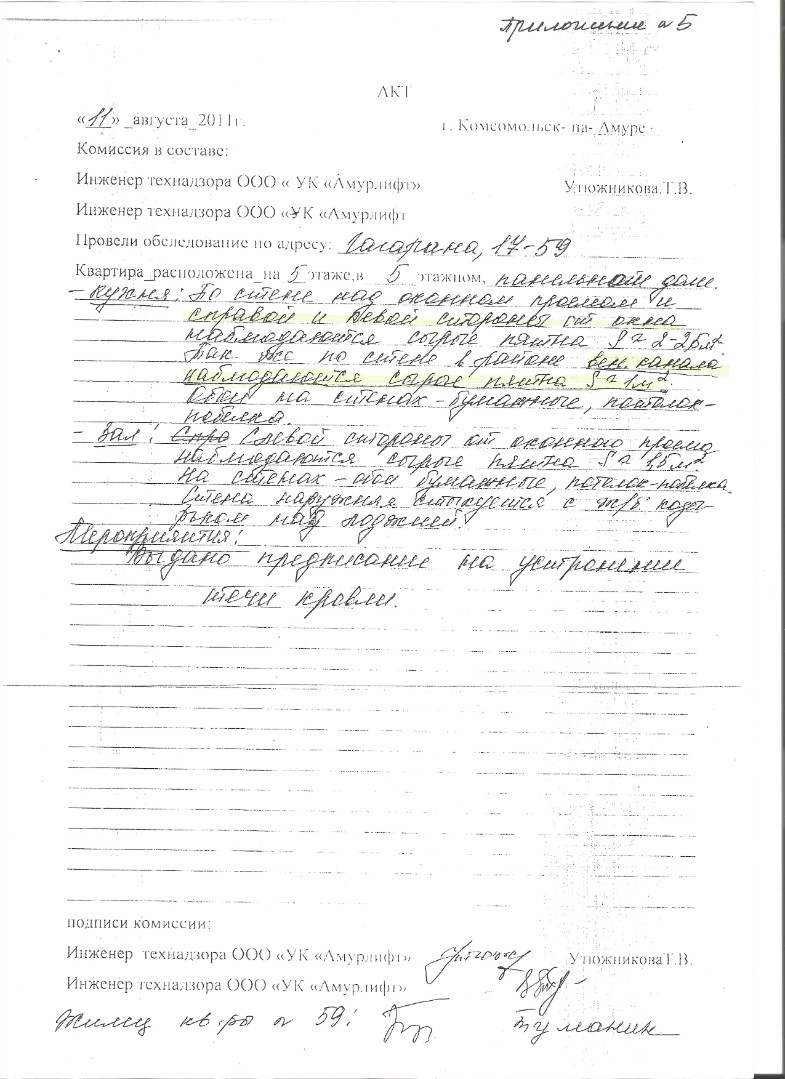 Приложение №5
АКТ
«11» _августа_2011г. г. Комсомольск- на- Амуре -
Комиссия в составе:
Инженер технадзора ООО « УК «Амурлифт» Утюжникова.Т.В.
Инженер технадзора ООО «УК «Амурлифт
Провели обследование по адресу: Гагарина, 17-59
Квартира_расположена_на 5 этаже,в 5 этажном, панельном доме.
- Кухня: По стене над оконном проемом и
справой и левой стороны от окна
наблюдаются сырые пятна S ≈ 2-2,5м²
Так же по стене в районе вен. канала
наблюдаются сырые пятна S ≈ 1м².
Обои на стенах - бумажные, потолок-
побелка.
- Зал: Спра С левой стороны от оконного проема
наблюдаются сырые пятна S ≈ 1,5м²
На стенах - обои бумажные, потолок-побелка.
Стена наружняя стыкуется с ж/б козы-
рьком над лоджией.
Мероприятия:
Выдано предписание на устранении
течи кровли.
подписи комиссии:
Инженер технадзора ООО «УК «Амурлифт» УтюжниковаТ.В.
Инженер технадзора ООО «УК «Амурлифт»
Жилец кв-ры № 59: Туманин